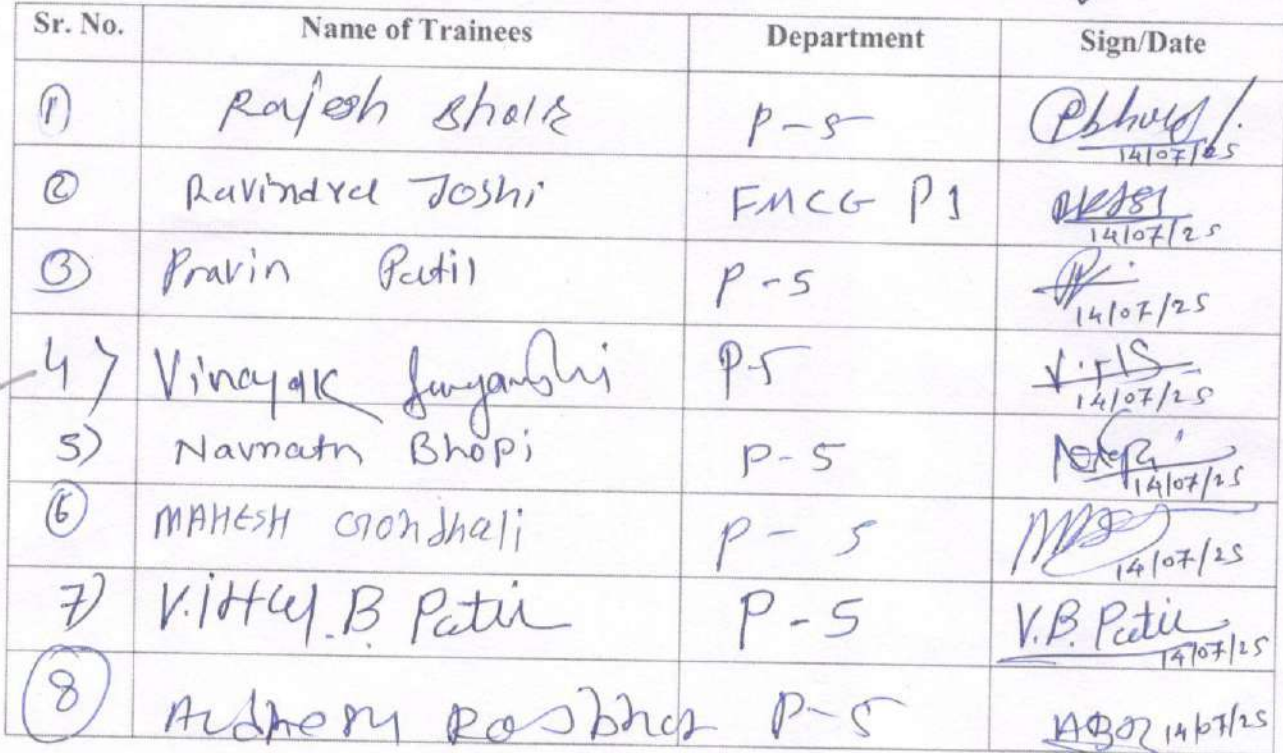 Sr. No. Name of Trainees Department Sign/Date
1 Rajesh Bhole P-5 14/07/25
2 Ravindra Joshi FMCG P1 14/07/25
3 Pravin Patil P-5 14/07/25
4) Vinayak P-5 14/07/25
5) Navnath Bhopi P-5 14/07/25
6 MAHESH Gondhali P-5 14/07/25
7) Vittal B Patil P-5 V.B. Patil 14/07/25
8 P-5 14/07/25